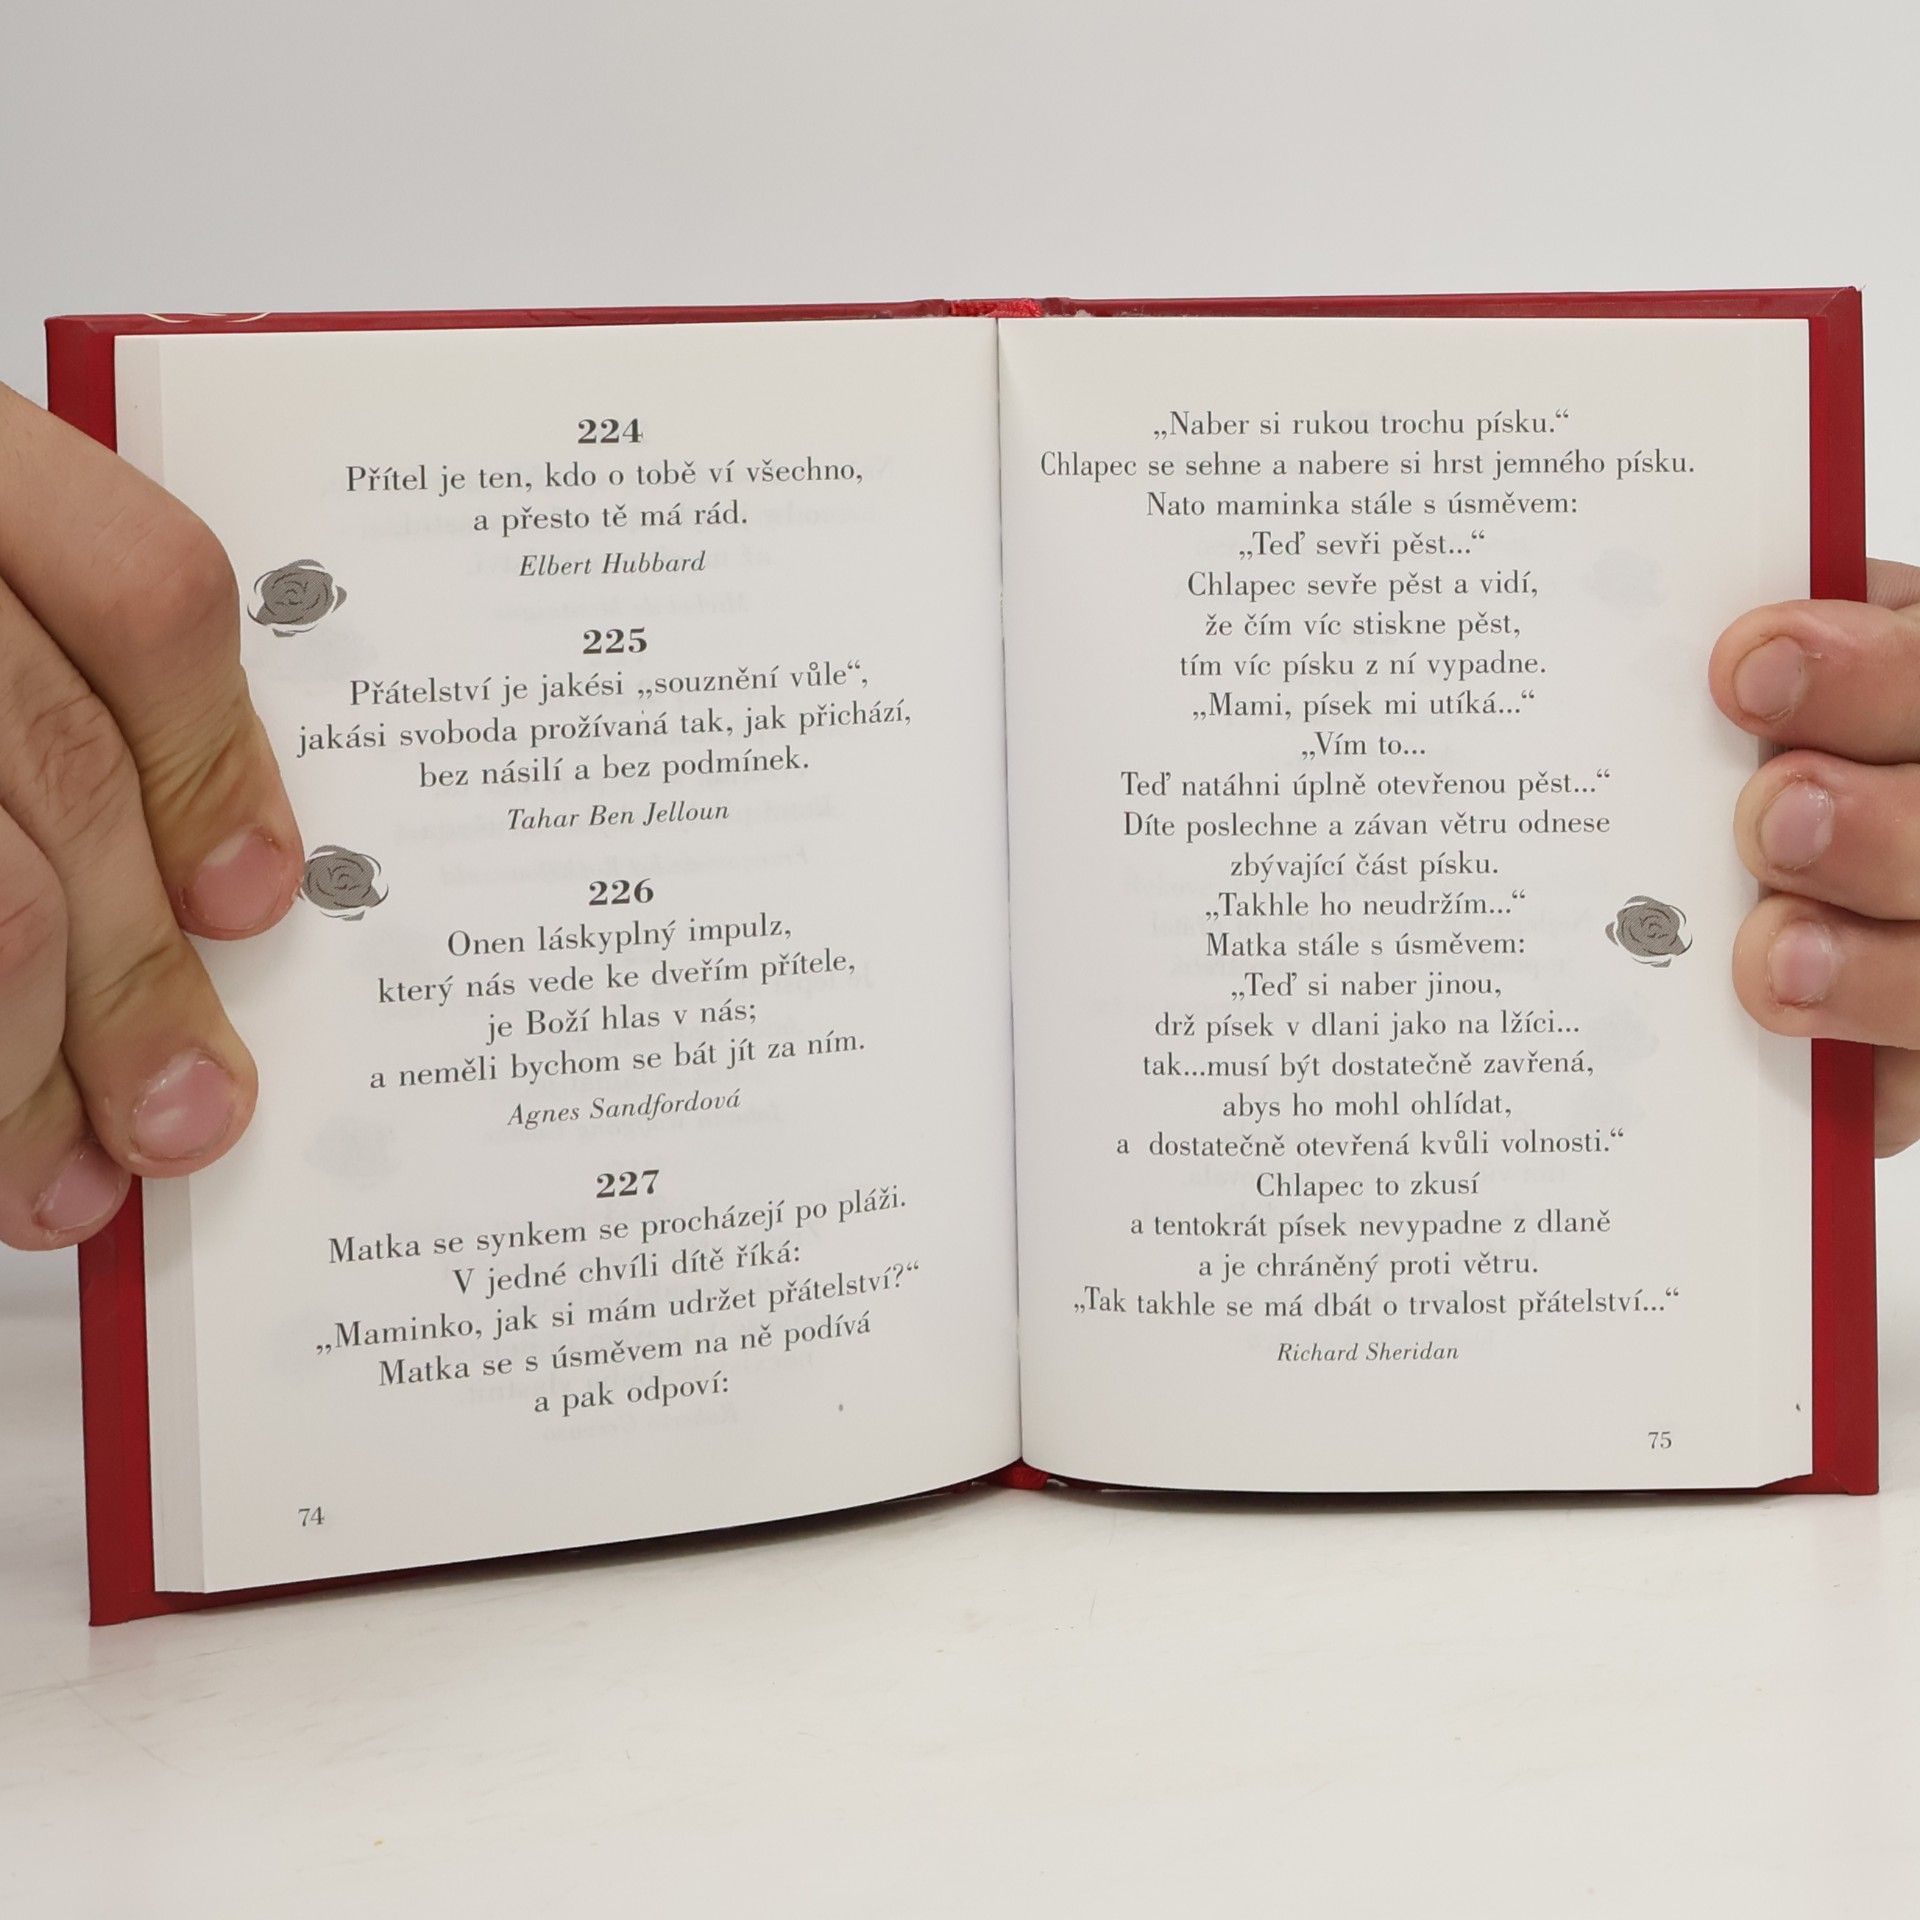 224
Přítel je ten, kdo o tobě ví všechno,
a přesto tě má rád.
Elbert Hubbard
225
Přátelství je jakési „souznění vůle“,
jakási svoboda prožívaná tak, jak přichází,
bez násilí a bez podmínek.
Tahar Ben Jelloun
226
Onen láskyplný impulz,
který nás vede ke dveřím přítele,
je Boží hlas v nás;
a neměli bychom se bát jít za ním.
Agnes Sandfordová
227
Matka se synkem se procházejí po pláži.
V jedné chvíli dítě říká:
„Maminko, jak si mám udržet přátelství?“
Matka se s úsměvem na ně podívá
a pak odpoví:
74
„Naber si rukou trochu písku.“
Chlapec se sehne a nabere si hrst jemného písku.
Nato maminka stále s úsměvem:
„Teď sevři pěst...“
Chlapec sevře pěst a vidí,
že čím víc stiskne pěst,
tím víc písku z ní vypadne.
„Mami, písek mi utíká...“
„Vím to...
Teď natáhni úplně otevřenou pěst...“
Díte poslechne a závan větru odnese
zbývající část písku.
„Takhle ho neudržím...“
Matka stále s úsměvem:
„Teď si naber jinou,
drž písek v dlani jako na lžíci...
tak...musí být dostatečně zavřená,
abys ho mohl ohlídat,
a dostatečně otevřená kvůli volnosti.“
Chlapec to zkusí
a tentokrát písek nevypadne z dlaně
a je chráněný proti větru.
„Tak takhle se má dbát o trvalost přátelství...“
Richard Sheridan
75